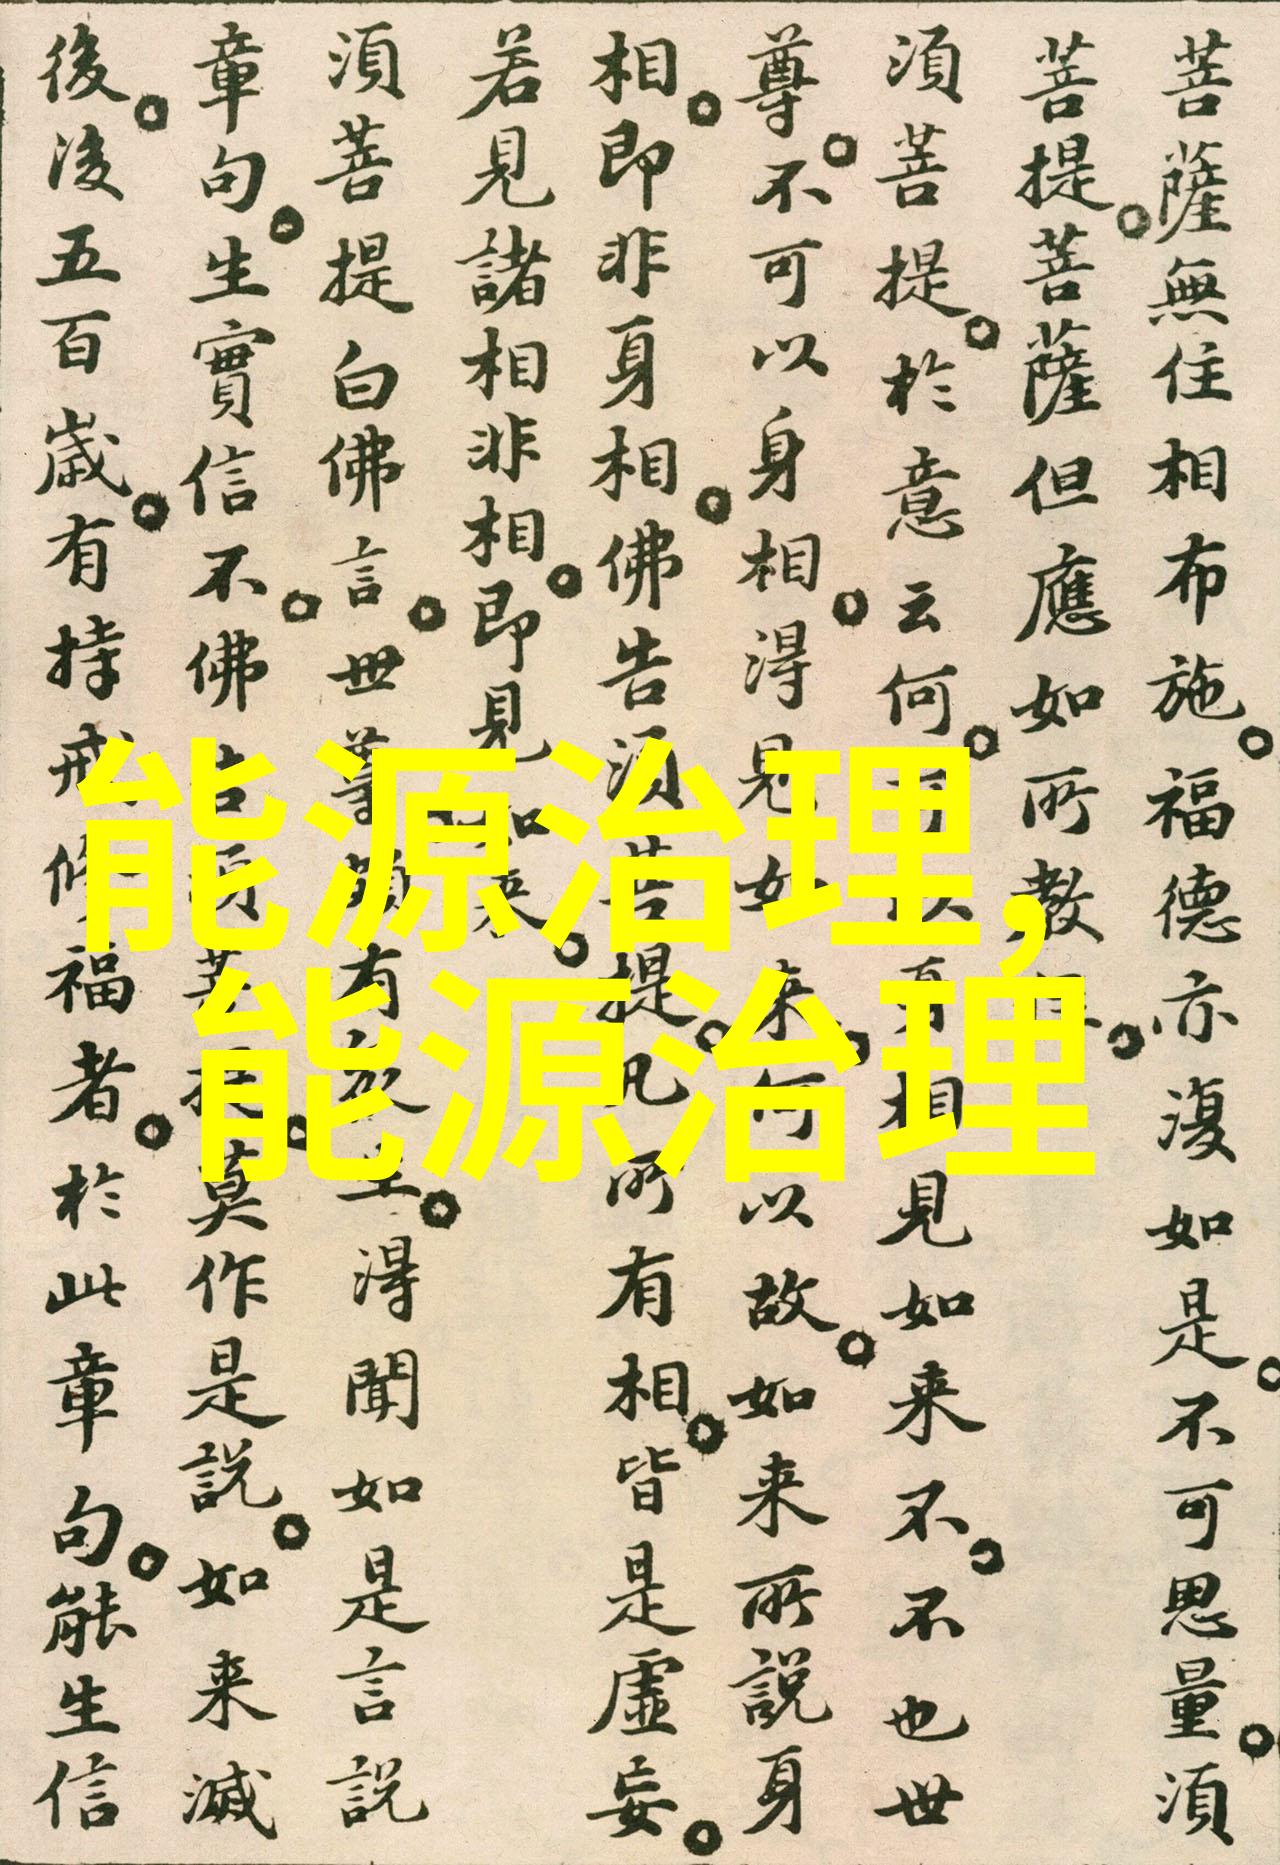 菩薩無住相布施。福德亦復如是。不可思量。須
菩提。菩薩但應如所教住。
須菩提。於意云何。可以身相見如来不。不也世
尊。不可以身相。得見如来。何以故。如来所説身
相。即非身相。佛告須菩提。凡所有相。皆是虛妄。
若見諸相非相。即見如来。
須菩提白佛言。世尊頗有衆生。得聞如是言説
章句。生實信不。佛告須菩提。莫作是説。如来滅
後。後五百歲。有持戒修福者。於此章句。能生信
能源治理,
能源治理